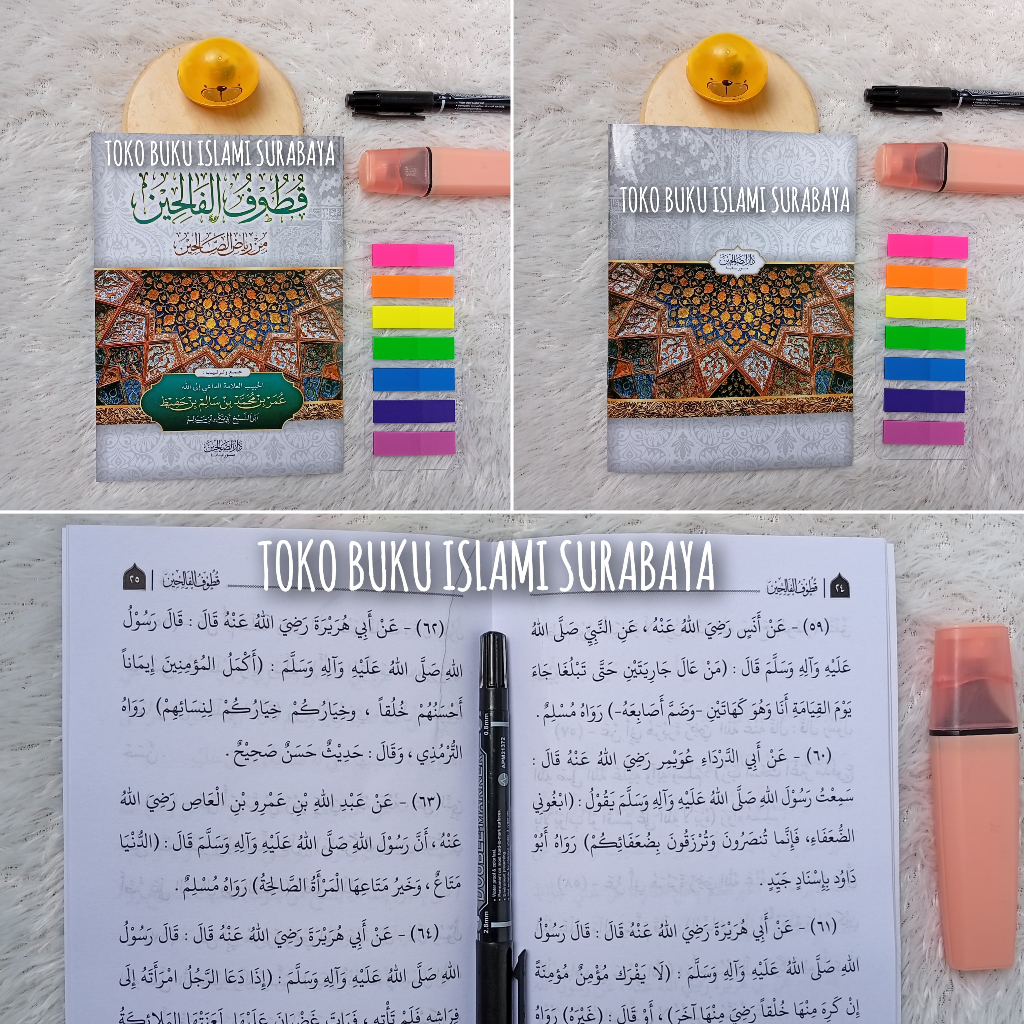 TOKO BUKU ISLAMI SURABAYA
قُطُوْفُ الفَالِحِيْنَ
مِنْ رِيَاضِ الصَّالِحِيْنَ
جمع وترتيب :
الحبيب العلامة الداعي إلى الله
عُمَر بن مُحَمَّد بن سَالِم بن حَفِيظ
TOKO BUKU ISLAMI SURABAYA
TOKO BUKU ISLAMI SURABAYA
٢٤
قُطُوْفُ الفَالِحِيْنَ
(٥٩) - عَنْ أَنَسٍ رَضِيَ اللهُ عَنْهُ ، عَنِ النَّبِيِّ صَلَّى اللهُ
عَلَيْهِ وَآلِهِ وَسَلَّمَ قَالَ : (مَنْ عَالَ جَارِيَتَيْنِ حَتَّى تَبْلُغَا جَاءَ
يَوْمَ القِيَامَةِ أَنَا وَهُوَ كَهَاتَيْنِ -وَضَمَّ أَصَابِعَهُ-) رَوَاهُ مُسْلِمٌ .
(٦٠) - عَنْ أَبِي الدَّرْدَاءِ عُوَيْمِرٍ رَضِيَ اللهُ عَنْهُ قَالَ :
سَمِعْتُ رَسُوْلَ اللهِ صَلَّى اللهُ عَلَيْهِ وَآلِهِ وَسَلَّمَ يَقُوْلُ : (ابْغُونِي
الضُّعَفَاءَ، فَإِنَّمَا تُنصَرُونَ وَتُرْزَقُونَ بِضُعَفَائِكُمْ) رَوَاهُ أَبُوْ
دَاوُد بِإِسْنَادٍ جَيِّدٍ .
(٦١) - عَنْ أَبِي هُرَيْرَةَ رَضِيَ اللهُ عَنْهُ قَالَ : قَالَ رَسُوْلُ
اللهِ صَلَّى اللهُ عَلَيْهِ وَآلِهِ وَسَلَّمَ : (لَا يَفْرَك مُؤْمِنٌ مُؤمِنَةً
إِنْ كَرِهَ مِنْهَا خُلُقاً رَضِيَ مِنْهَا آخَرَ) ، أَوْ قَالَ : (غَيْرَهُ) رَوَاهُ
٢٥
قُطُوْفُ الفَالِحِيْنَ
(٦٢) - عَنْ أَبِي هُرَيْرَةَ رَضِيَ اللهُ عَنْهُ قَالَ : قَالَ رَسُوْلُ
اللهِ صَلَّى اللهُ عَلَيْهِ وَآلِهِ وَسَلَّمَ : (أَكْمَلُ المُؤْمِنِينَ إِيمَاناً
أَحْسَنُهُمْ خُلُقاً ، وخِيَارُكُمْ خِيَارُكُمْ لِنِسَائِهِمْ) رَوَاهُ
التِّرْمِذِي ، وَقَالَ : حَدِيْثٌ حَسَنٌ صَحِيْحٌ .
(٦٣) - عَنْ عَبْدِ اللهِ بْنِ عَمْرِو بْنِ الْعَاصِ رَضِيَ اللهُ
عَنْهُ ، أَنَّ رَسُوْلَ اللهِ صَلَّى اللهُ عَلَيْهِ وَآلِهِ وَسَلَّمَ قَالَ : (الدُّنْيَا
مَتَاعٌ ، وَخَيرُ مَتَاعِهَا الْمَرْأَةُ الصَّالِحَةُ) رَوَاهُ مُسْلِمٌ .
(٦٤) - عَنْ أَبِي هُرَيْرَةَ رَضِيَ اللهُ عَنْهُ قَالَ : قَالَ رَسُوْلُ
اللهِ صَلَّى اللهُ عَلَيْهِ وَآلِهِ وَسَلَّمَ : (إِذَا دَعَا الرَّجُلُ امْرَأَتَهُ إِلَى
فِرَاشِهِ فَلَمْ تَأْتِهِ ، فَبَاتَ غَضْبَانَ عَلَيْهَا، لَعَنَتْهَا المَلائِكَةُ
0.8mm
2.8mm